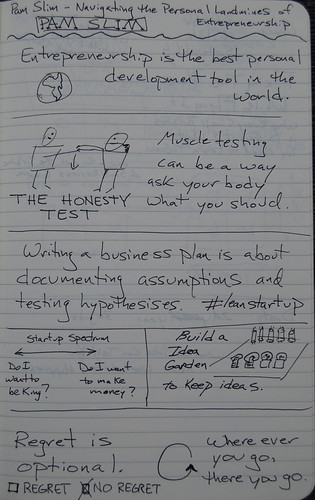 Pam Slim - Navigating the Personal Landmines of
Entrepreneurship
PAM SLIM
Entrepreneurship is the best personal
development tool in the
world.
Muscle testing
can be a way
ask your body
what you should.
THE HONESTY
TEST
Writing a business plan is about
documenting assumptions and
testing hypothesises. #leanstartup
Startup Spectrum
Do I
want to
be King?
Do I want
to make
money?
Build a
Idea
Garden
to keep ideas.
Regret is
optional.
REGRET NO REGRET
Where ever
you go,
there you go.